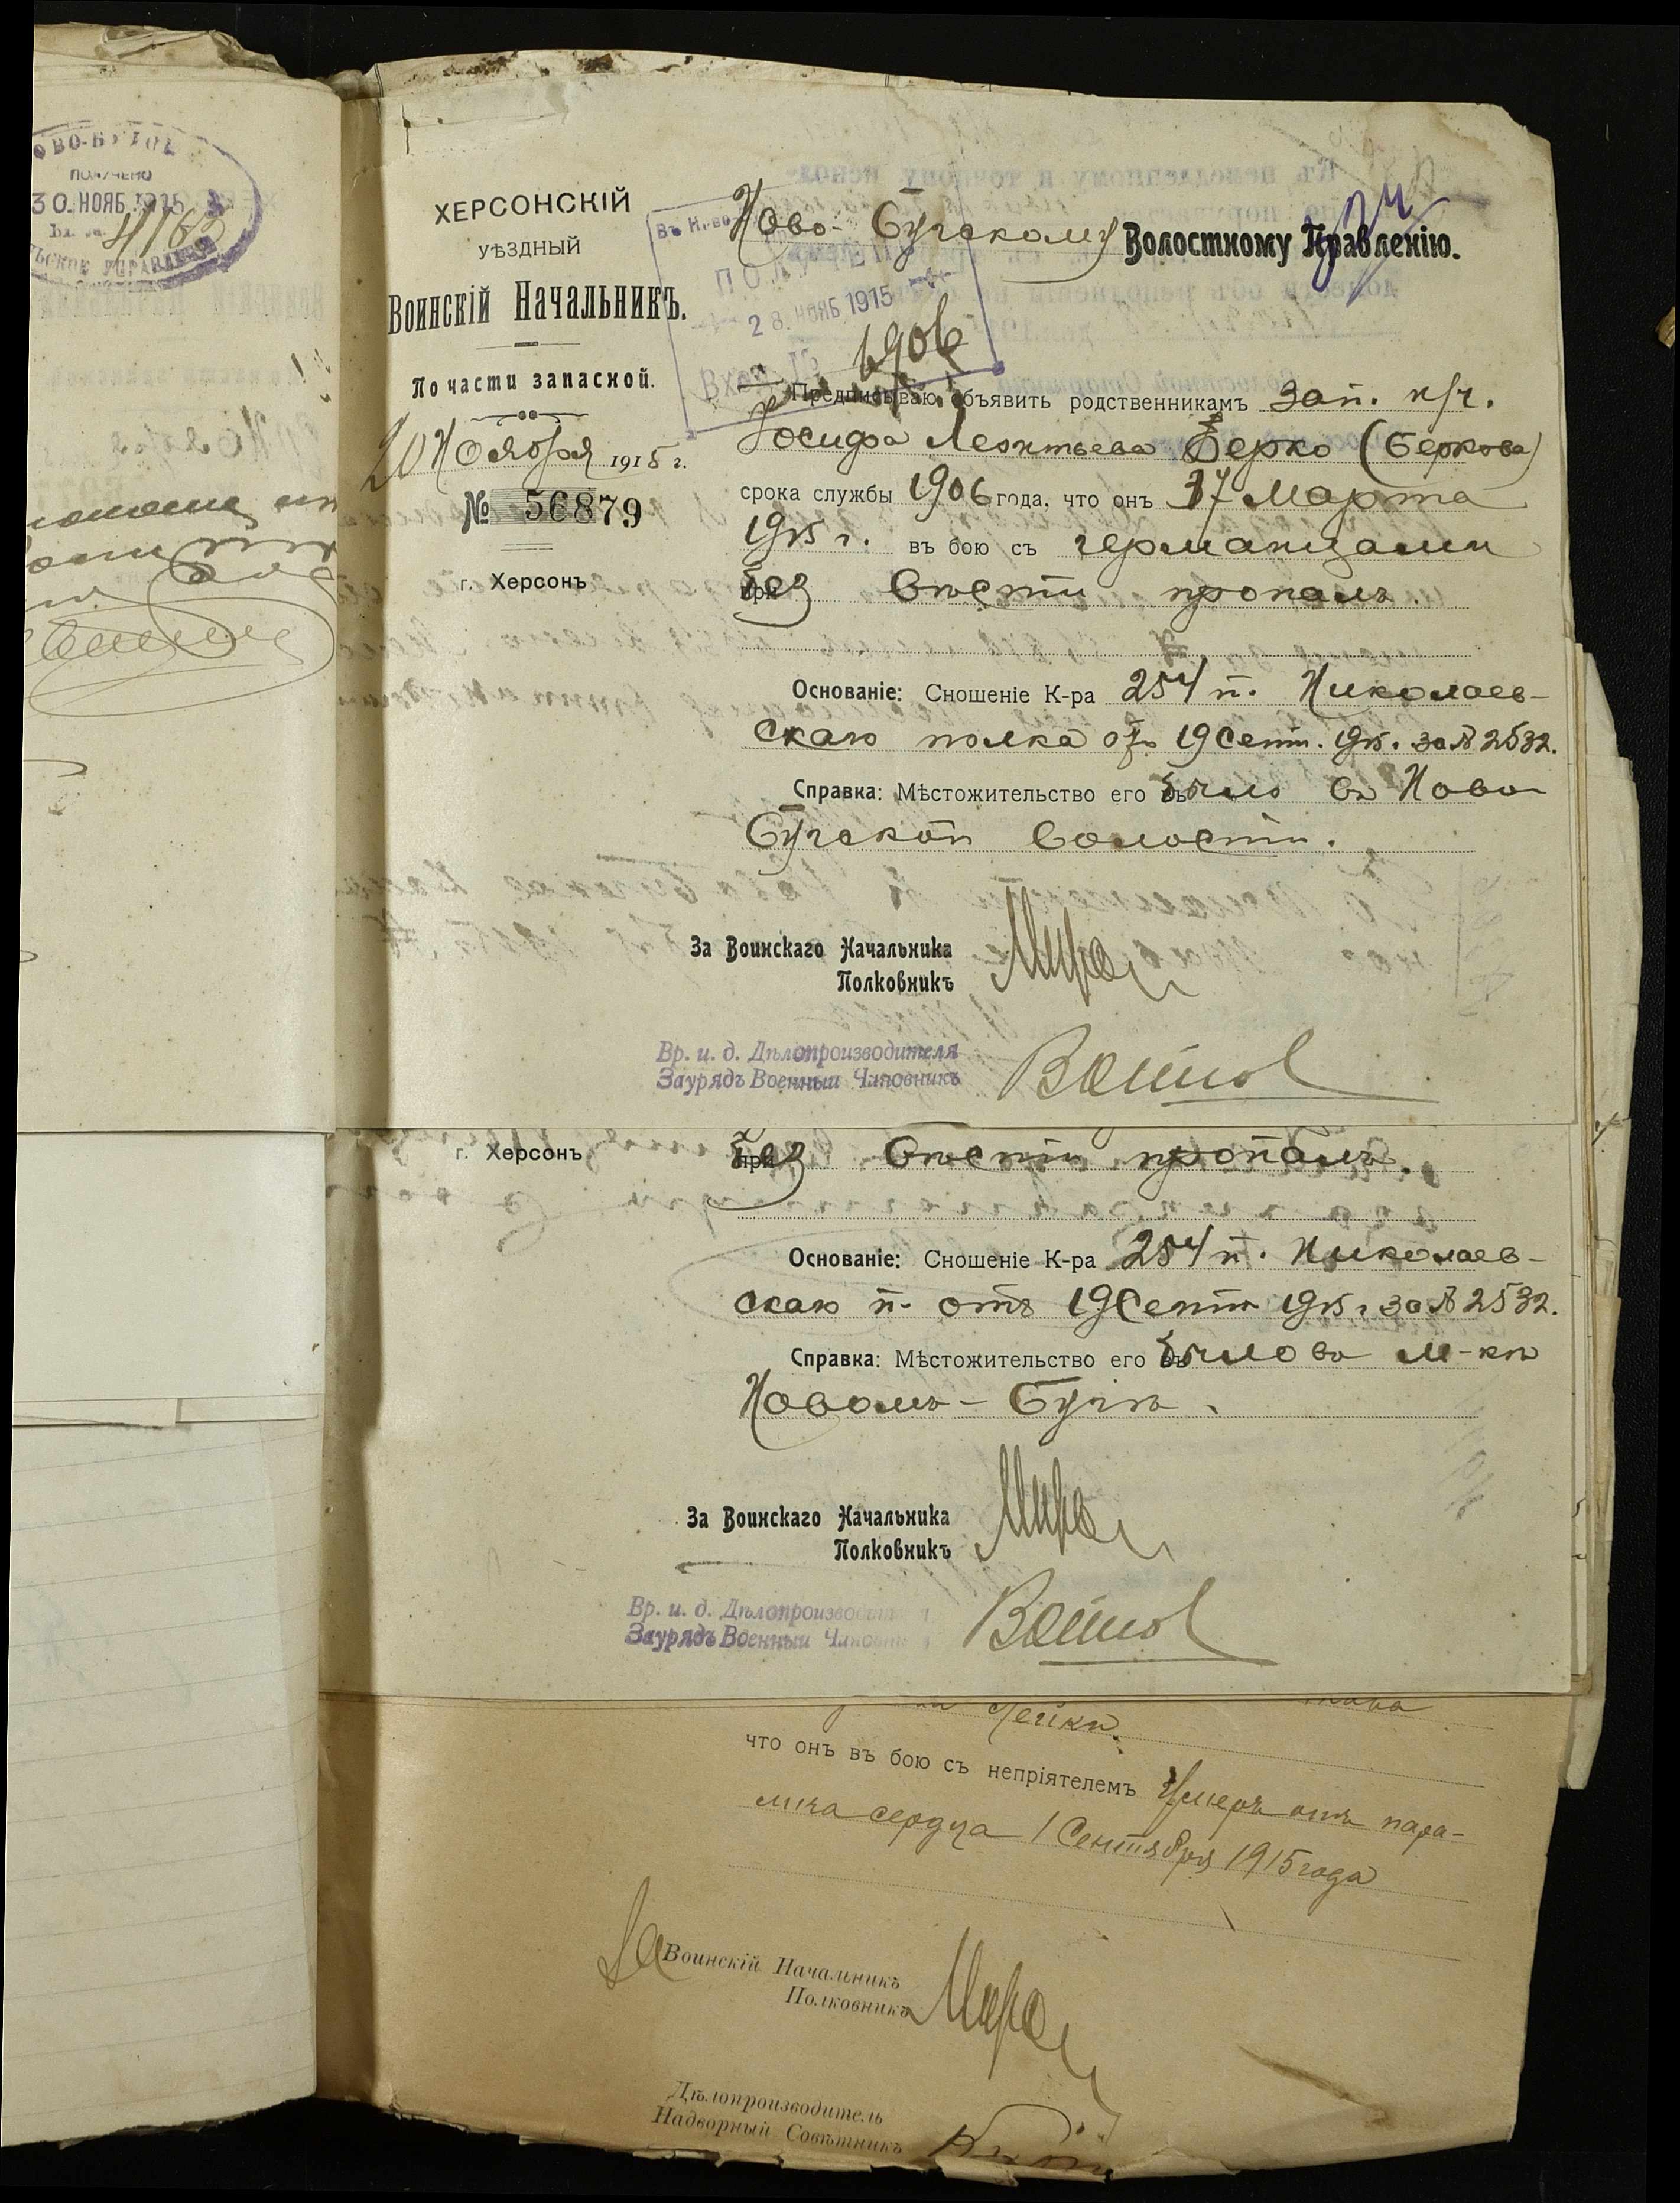 ПОЛУЧЕНО
30 НОЯБ 1915
4163
ХЕРСОНСКІЙ
УѢЗДНЫЙ
Воинскій Начальникъ.
По части запасной.
20 Ноября 1915 г.
№ 56879
г. Херсонъ
Ново-Бугскому Волостному Правленію.
28 НОЯБ 1915
Предписываю объявить родственникамъ зап. н/ч.
Іосифа Леонтьева Берко (Беркова)
срока службы 1906 года, что онъ 17 Марта
1915 г. въ бою съ германцами
без вѣсти пропалъ.
Основаніе: Сношеніе К-ра 254 п. Николаев-
скаго полка отъ 19 Сент. 1915. за № 2532.
Справка: Мѣстожительство его было въ Ново
Бугской волости.
За Воинскаго Начальника
Полковникъ
Вр. и. д. Дѣлопроизводителя
Заурядъ Военный Чиновникъ
г. Херсонъ
без вѣсти пропалъ.
Основаніе: Сношеніе К-ра 254 п. Николаев-
скаго п. отъ 19 Сент 1915 г. за № 2532.
Справка: Мѣстожительство его было въ м-кѣ
Новомъ-Бугѣ.
За Воинскаго Начальника
Полковникъ
Вр. и. д. Дѣлопроизводителя
Заурядъ Военный Чиновникъ
что онъ въ бою съ непріятелемъ Умеръ отъ пара-
лича сердца 1 Сентября 1915 года
За Воинскій Начальникъ
Полковникъ
Дѣлопроизводитель
Надворный Совѣтникъ